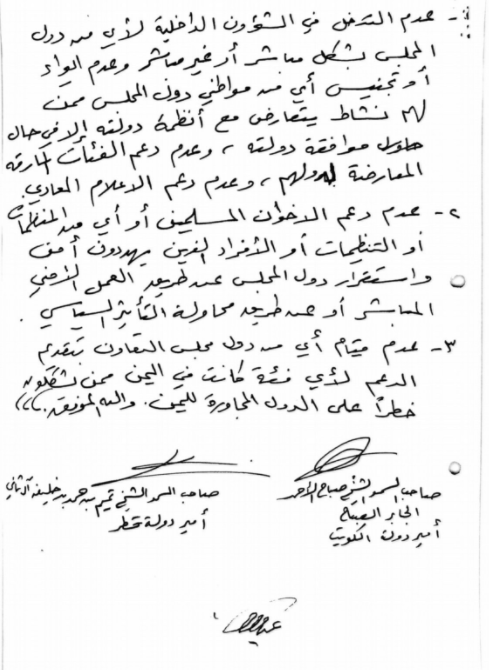 ١- عدم التدخل في الشؤون الداخلية لأي من دول
المجلس بشكل مباشر أو غير مباشر وعدم إيواء
أو تجنيس أي من مواطني دول المجلس ممن
لهم نشاط يتعارض مع أنظمة دولته إلا في حال
موافقة دولته ، وعدم دعم الفئات المارقه
المعارضة لدولهم ، وعدم دعم الاعلام المعادي.
٢- عدم دعم الاخوان المسلمين أو أي من المنظمات
أو التنظيمات أو الأفراد الذين يهددون أمن
واستقرار دول المجلس عن طريق العمل الأمني
المباشر أو عن طريق محاولة التأثير السياسي .
٣- عدم قيام أي من دول مجلس التعاون بتقديم
الدعم لأي فئة كانت في اليمن ممن يشكلون
خطراً على الدول المجاورة لليمن. والله الموفق ،،،
صاحب السمو الشيخ صباح الأحمد
الجابر الصباح
أمير دولة الكويت
صاحب السمو الشيخ تميم بن حمد بن خليفه آل ثاني
أمير دولة قطر